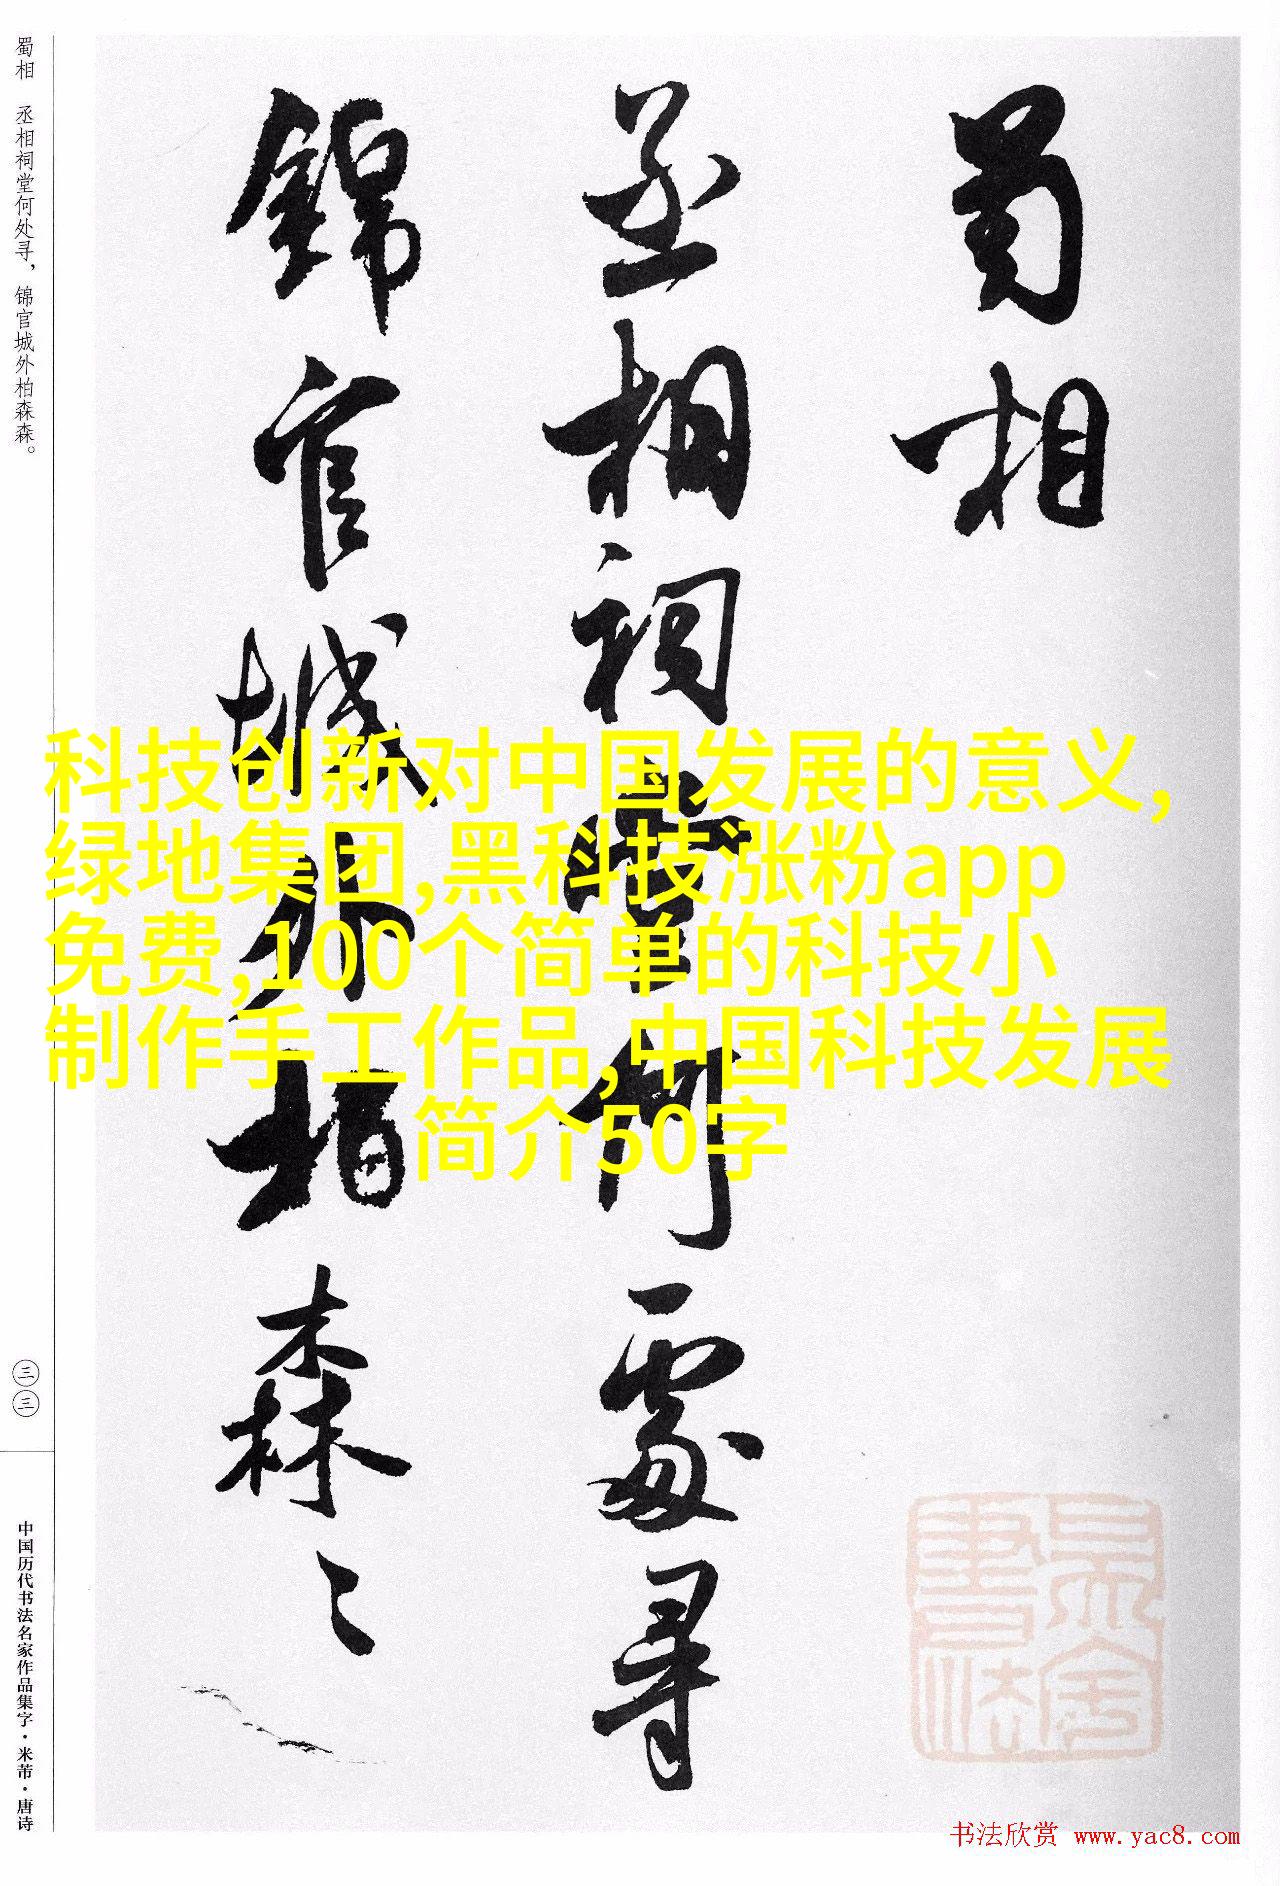 蜀相
丞相祠堂何處尋
錦官城外柏森々
科技创新对中国发展的意义,
绿地集团,黑科技涨粉app
免费,100个简单的科技小
制作手工作品,中国科技发展
简介50字
蜀相 丞相祠堂何处寻，锦官城外柏森森。
三三
中国历代书法名家作品集字·米芾·唐诗
书法欣赏 www.yac8.com